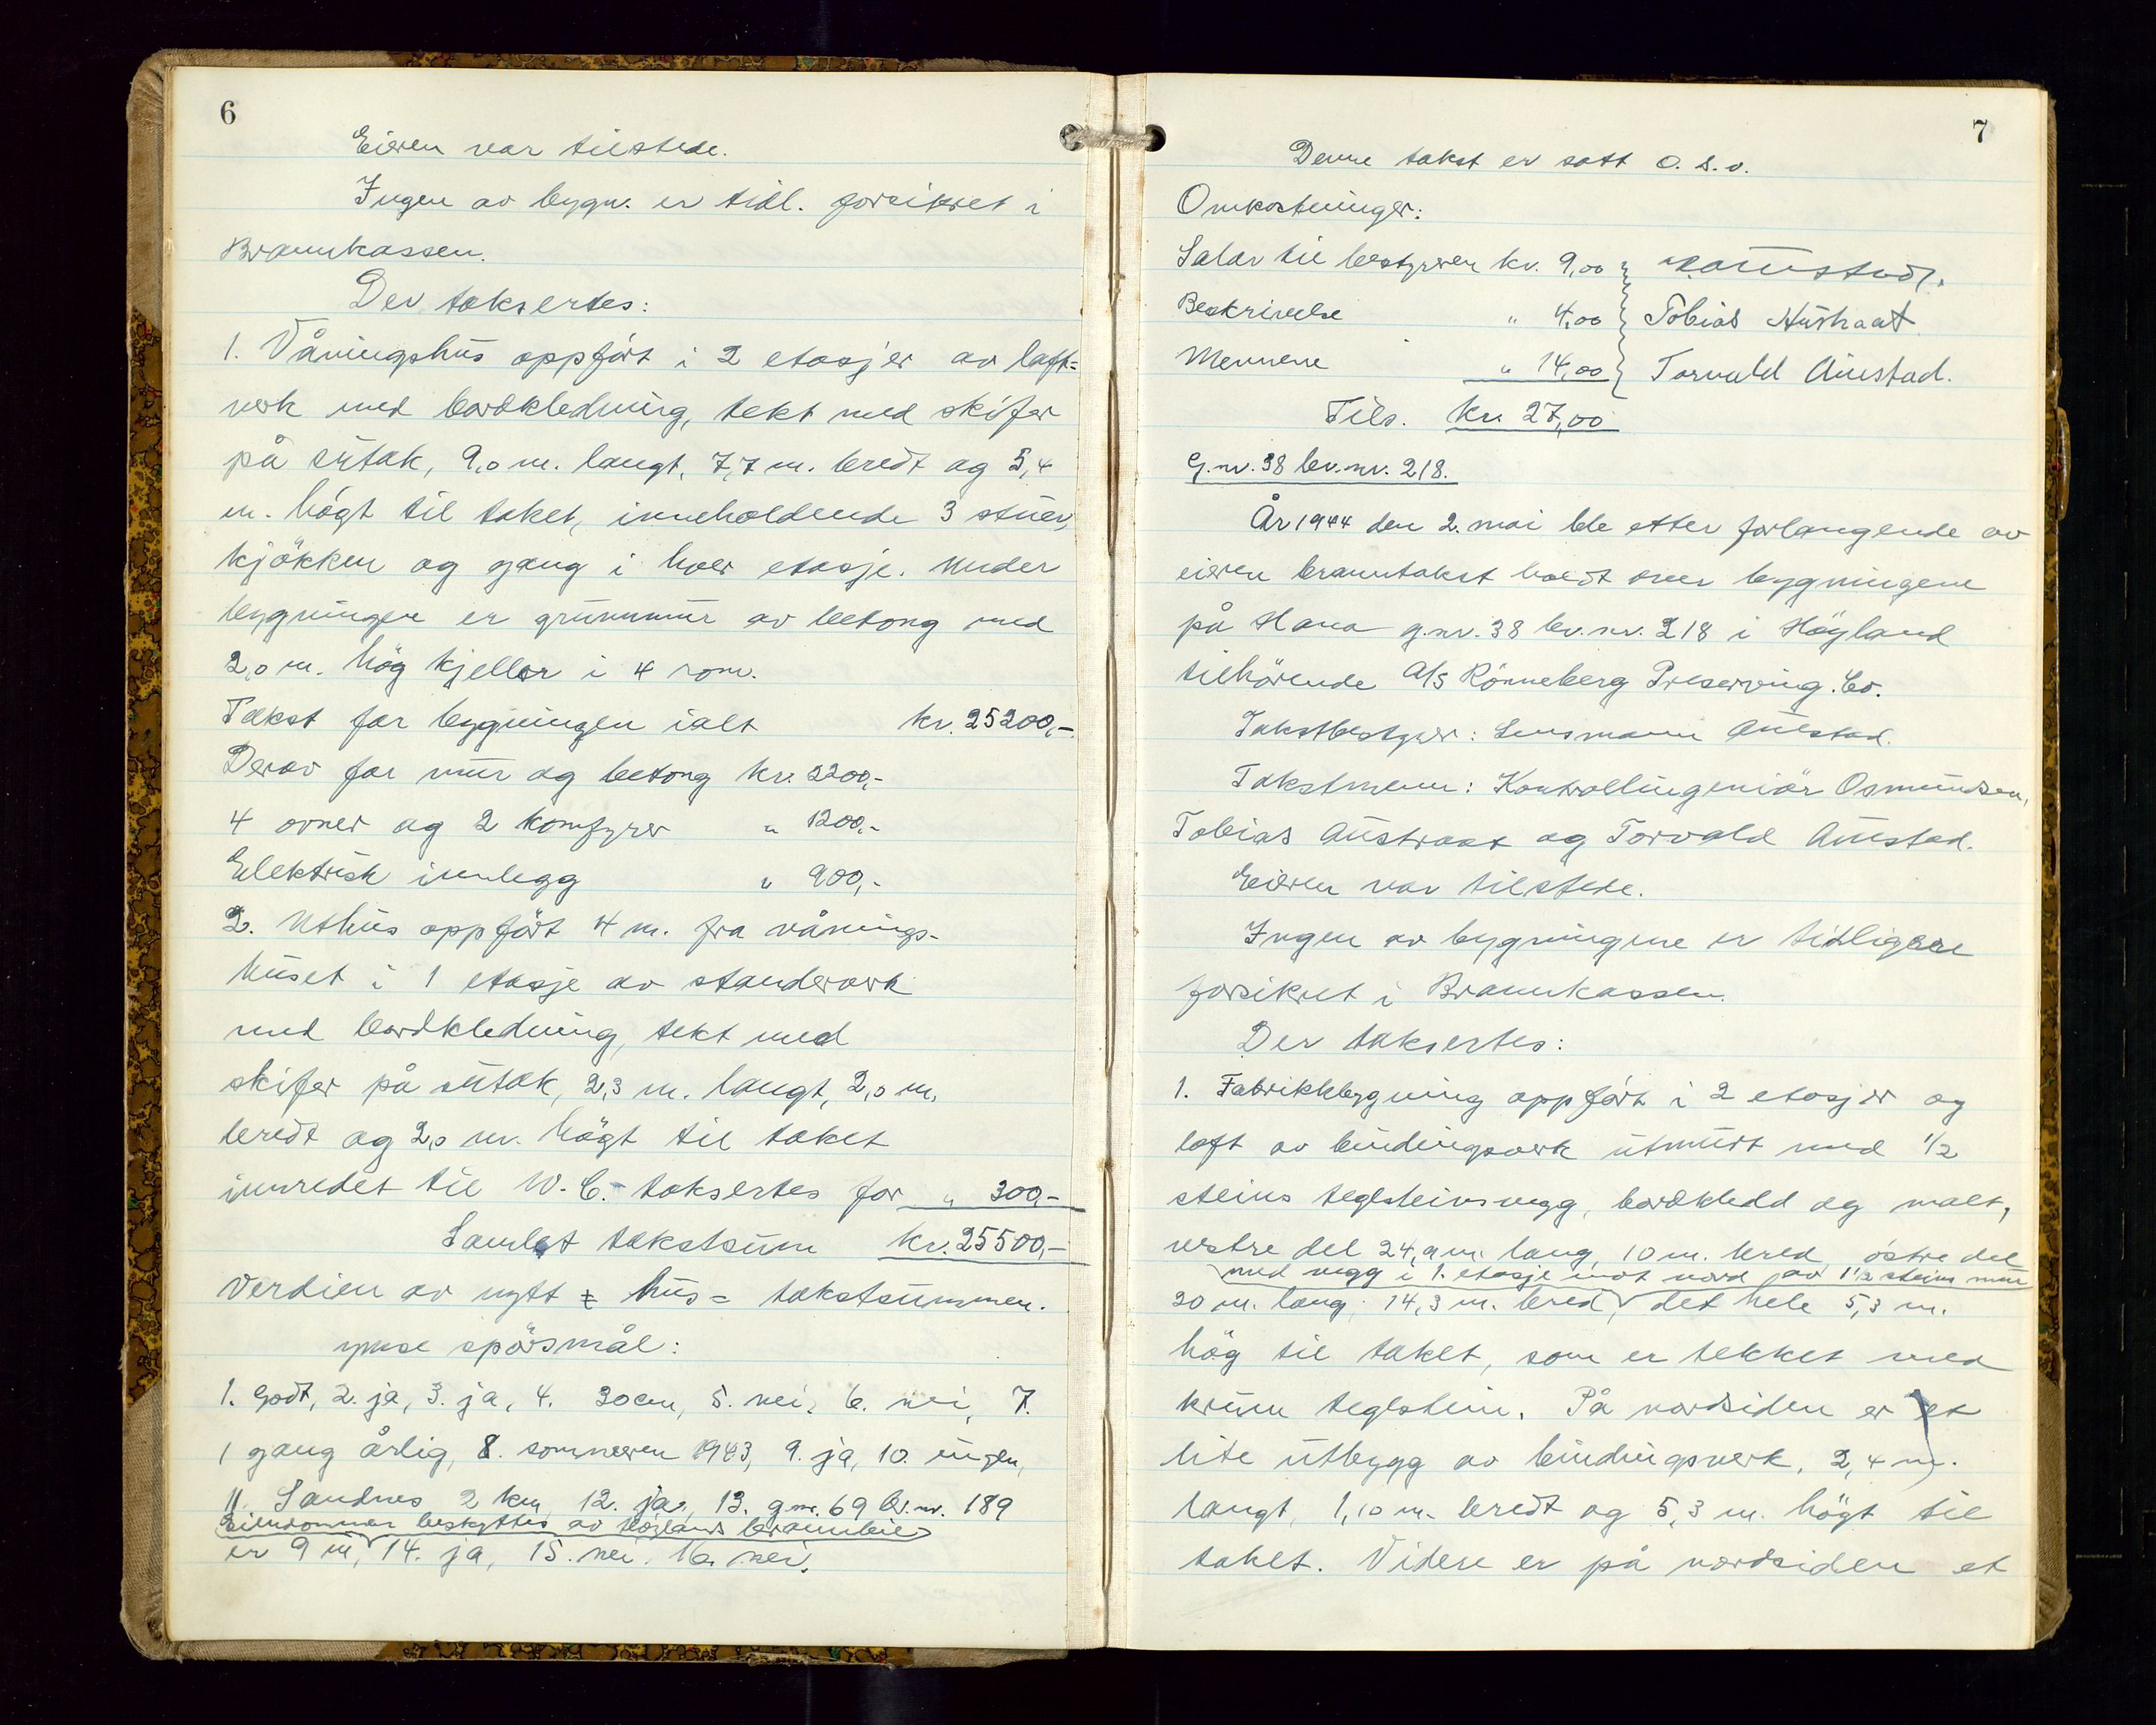 6
Eieren var tilstede.
Ingen av bygn. er tidl. forsikret i
Brannkassen.
Der taksertes:
1. Våningshus oppført i 2 etasjer av laft-
verk med bordkledning, tekt med skifer
på sutak, 9,0 m. langt, 7,7 m. bredt og 5,4
m. högt til taket, inneholdende 3 stuer,
kjökken og gang i hver etasje. Under
bygningen er grunnmur av betong med
2,0 m. hög kjeller i 4 rom.
Takst for bygningen ialt kr. 25200,-
Derav for mur og betong kr. 2200,-
4 ovner og 2 komfyrer " 1200,-
Elektrisk innlegg " 900,-
2. Uthus oppfört 4 m. fra vånings-
huset i 1 etasje av standerverk
med bordkledning, tekt med
skifer på sutak, 2,3 m. langt, 2,0 m.
bredt og 2,0 m. högt til taket
innredet til W.C. - taksertes for " 300,-
Samlet takstsum kr. 25500,-
Verdien av nytt hus = takstsummen.
ymse spörsmål:
1. godt, 2. ja, 3. ja, 4. 30cm, 5. nei, 6. nei, 7.
1 gang årlig, 8. sommeren 1943, 9. ja, 10. ingen,
11. Sandnes 2 km, 12. ja, 13. g.nr. 69 br.nr. 189
Eiendommen beskyttes av Höylands brannbil
er 9 m, 14. ja, 15. nei, 16. nei.
7
Denne takst er satt o.s.v.
Omkostninger:
Salær til bestyreren kr. 9,00 Aulestad.
Beskrivelse " 4,00 Tobias Austraat
Mennene " 14,00 Torvald Aulestad.
Tils. kr. 27,00
G.nr. 38 br.nr. 218.
År 1944 den 2. mai ble etter forlangende av
eieren branntakst holdt over bygningene
på Hana g.nr. 38 br.nr. 218 i Höyland
tilhörende A/S Rönneberg Preserving Co.
Takstbestyrer: Lensmann Aulestad.
Takstmenn: Kontrollingeniör Osmundsen,
Tobias Austraat og Torvald Aulestad.
Eieren var tilstede.
Ingen av bygningene er tidligere
forsikret i Brannkassen.
Der taksertes:
1. Fabrikkbygning oppfört i 2 etasjer og
loft av bindingsverk utmurt med 1/2
steins teglsteinsvegg, bordkledd og malt,
vestre del 24,9 m. lang, 10 m. bred, östre del
med vegg i 1. etasje mot nord av 1 1/2 steins mur
20 m. lang, 14,3 m. bred, det hele 5,3 m.
hög til taket, som er tekket med
krum teglstein. På nordsiden er et
lite utbygg av bindingsverk, 2,4 m.
langt, 1,10 m. bredt og 5,3 m. högt til
taket. Videre er på nordsiden et